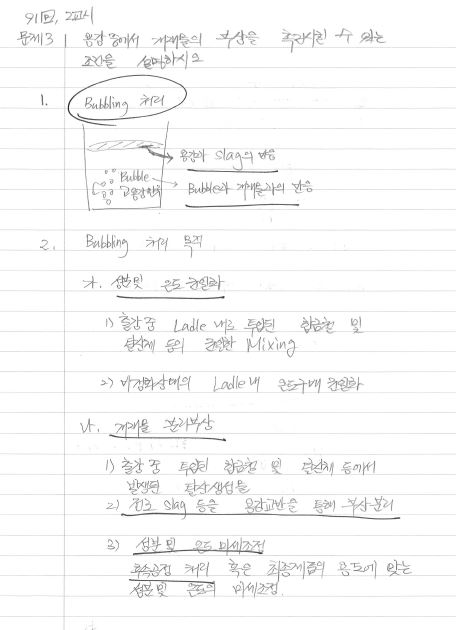 91회, 2교시
문제3) 용강 중에서 개재물의 부상을 촉진시킬 수 있는
조건을 설명하시오
1. Bubbling 처리
용강과 slag의 반응
Bubble
Bubble과 개재물과의 반응
용강
2. Bubbling 처리 목적
가. 성분 및 온도 균일화
1) 출강 중 Ladle 내로 투입된 합금철 및
탈산제 등의 균일한 Mixing
2) 비정화상태의 Ladle 내 온도구배 균일화
나. 개재물 분리부상
1) 출강 중 투입된 합금철 및 탈산제 등에서
발생된 탈산생성물
2) 전로 slag 등을 용강교반을 통해 부상분리
3) 성분 및 온도 미세조정
후속공정 처리 혹은 최종제품의 용도에 맞는
성분 및 온도의 미세조정.